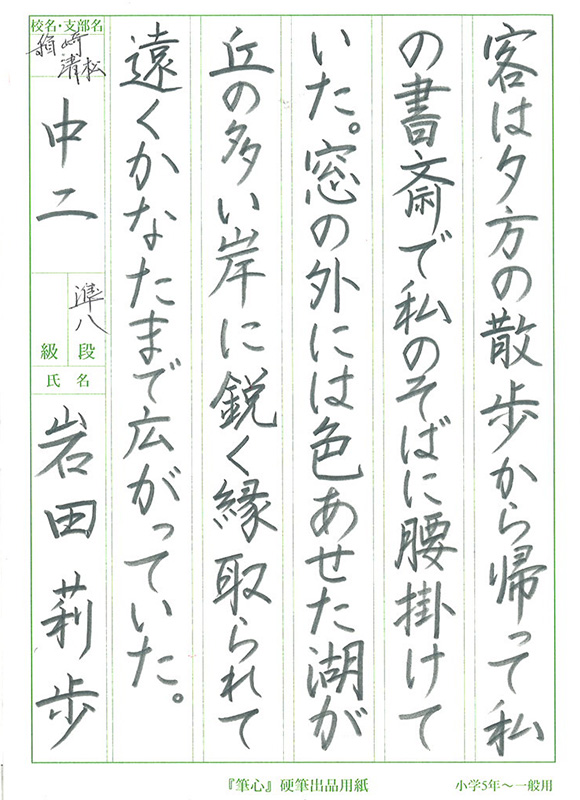 客は夕方の散歩から帰って私
の書斎で私のそばに腰掛けて
いた。窓の外には色あせた湖が
丘の多い岸に鋭く縁取られて
遠くかなたまで広がっていた。
校名・支部名
箱崎
清松
中二
段
級
準八
氏名
岩田莉歩
『筆心』硬筆出品用紙
小学5年〜一般用